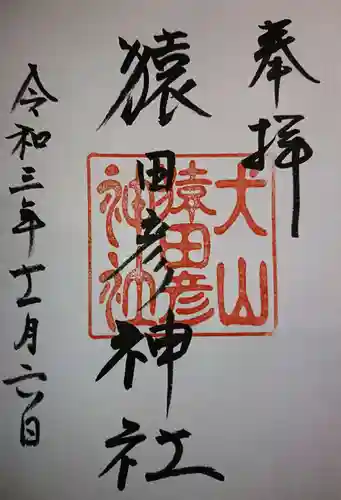 奉拝
猿田彦神社
犬山
猿田彦
神社
令和三年十一月六日